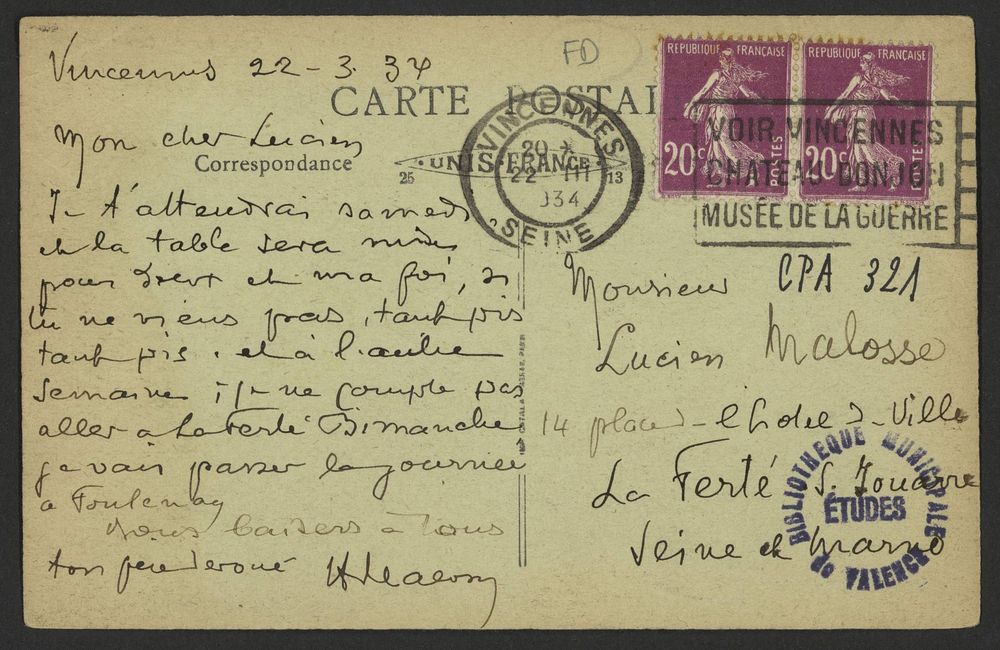 Vincennes 22-3.34
FD
CARTE POSTAL
Correspondance
25 UNIS-FRANCE 13
VINCENNES
20 *
22 III
034
SEINE
REPUBLIQUE FRANÇAISE
20c POSTES
REPUBLIQUE FRANÇAISE
20c POSTES
VOIR VINCENNES
CHATEAU DONJON
MUSÉE DE LA GUERRE
Mon cher Lucien
Je t'attendrai samedi
et la table sera mise
pour deux et ma foi, si
tu ne viens pas, tant pis
tant pis. et à l'autre
semaine; je ne compte pas
aller à La Ferté Dimanche
je vais passer la journée
à Fontenay
bons baisers à tous
ton
CPA 321
Monsieur
Lucien Malosse
14 place de l'hotel de Ville
La Ferté S. Jouarre
Seine et Marne
BIBLIOTHEQUE MUNICIPALE
ÉTUDES
de VALENCE